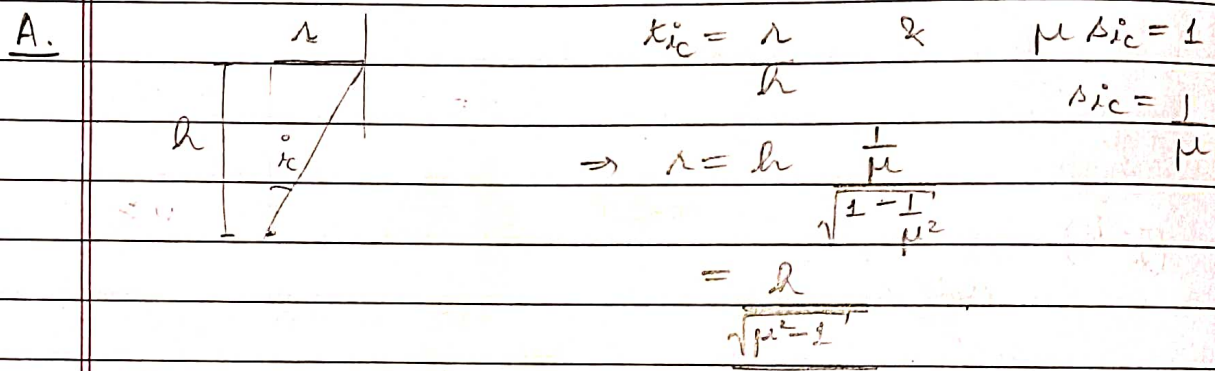 A. r t i_c = r/h & μ s i_c = 1
h i_c s i_c = 1/μ
⇒ r = h (1/μ)/√(1 - 1/μ²)
= h/√(μ² - 1)